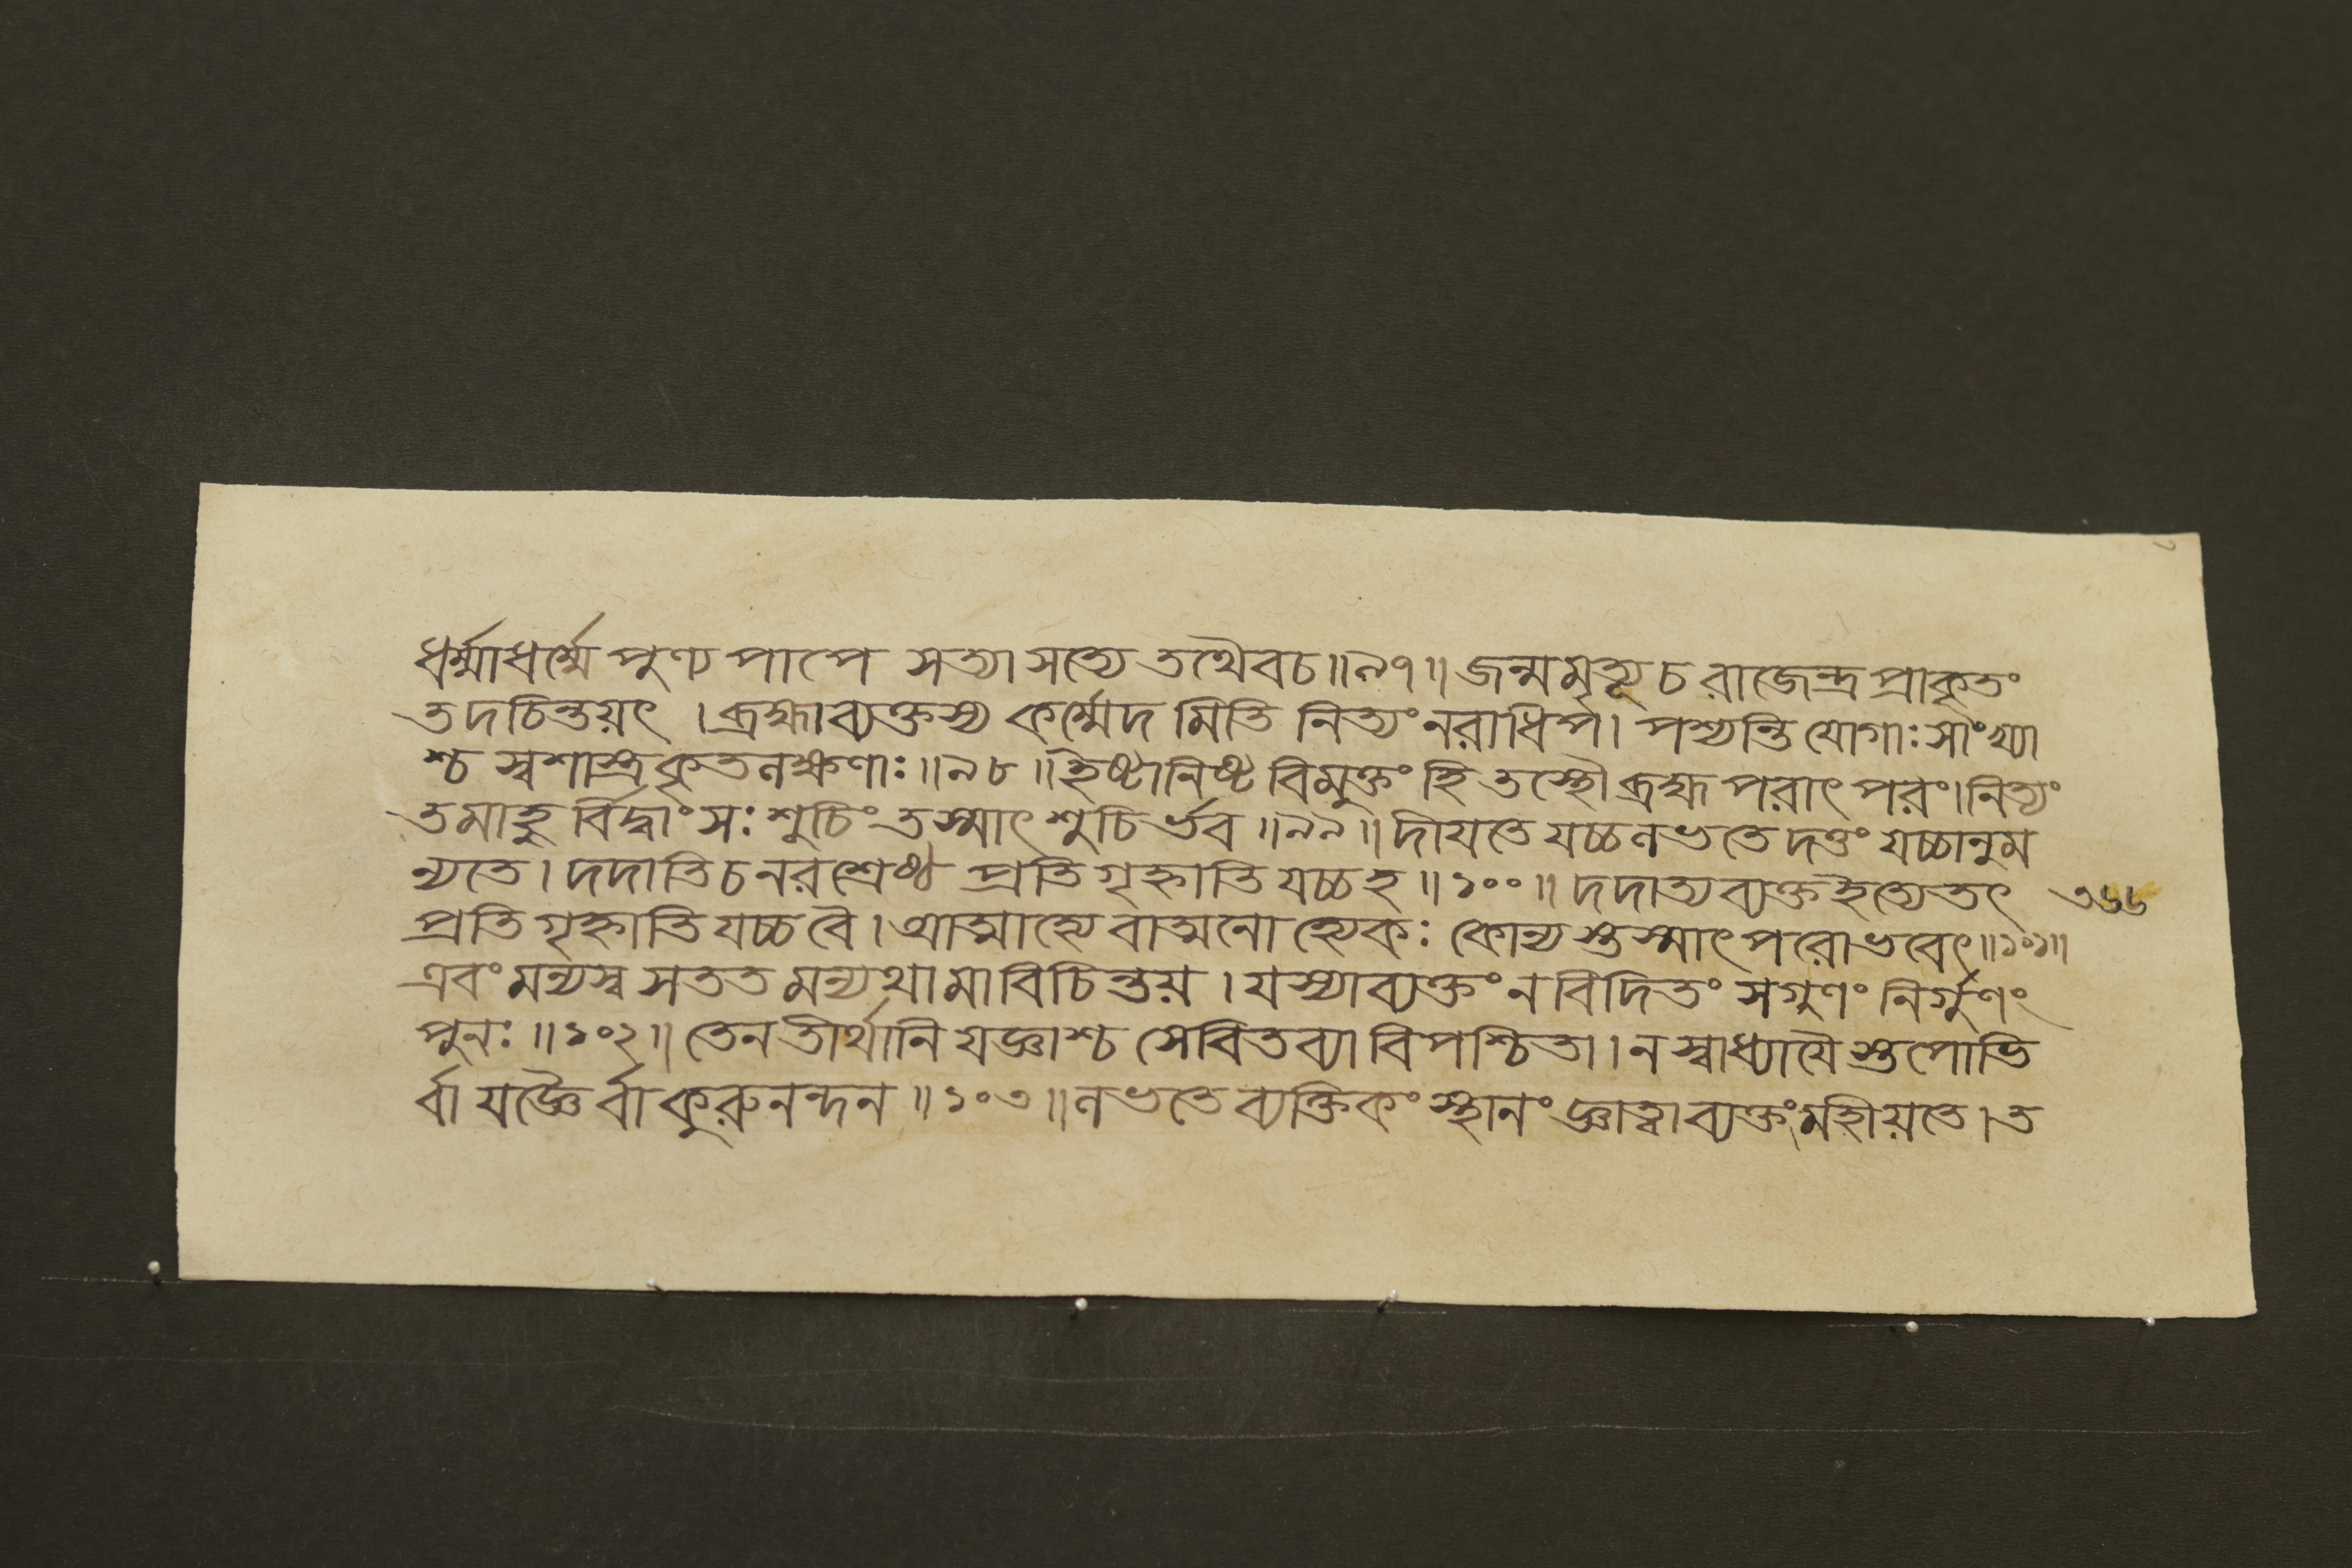 ধর্ম্মাধর্ম্মে পুণ্য পাপে সত্যাসত্যে তথৈবচ॥৯৭॥ জন্মমৃত্যূ চ রাজেন্দ্র প্রাকৃতং
তদচিন্তয়ৎ । ব্রহ্মাব্যক্তস্য কর্ম্মেদ মিতি নিত্যং নরাধিপ। পশ্যন্তি যোগাঃ সাংখ্যা
শ্চ স্বশাস্ত্রকৃতলক্ষণাঃ॥৯৮॥ ইষ্টানিষ্ট বিমুক্তং হি তস্থৌ ব্রহ্ম পরাৎ পরং। নিত্যং
তমাহু র্বিদ্বাংসঃ শুচিং তস্মাৎ শুচি র্ভব॥৯৯॥ দীয়তে যচ্চ লভতে দত্তং যচ্চানুম
ন্যতে। দদাতি চ নরশ্রেষ্ঠ প্রতি গৃহ্নাতি যচ্চ হ॥১০০॥ দদাত্য ব্যক্ত ইত্যেতৎ
৩৬৬
প্রতি গৃহ্নাতি যচ্চ বৈ। আত্মাহ্যে বাত্মনো হ্যেকঃ কোন্য স্তস্মাৎ পরোভবেৎ॥১০১॥
এবং মন্যস্ব সতত মন্যথা মা বিচিন্তয়। যস্যাব্যক্তং ন বিদিতং সগুণং নির্গুণং
পুনঃ॥১০২॥ তেন তীর্থানি যজ্ঞাশ্চ সেবিতব্যা বিপশ্চিতা। ন স্বাধ্যায়ৈ স্তপোভি
র্বা যজ্ঞৈ র্বা কুরুনন্দন॥১০৩॥ লভতে ব্যক্তিকং স্থানং জ্ঞাত্বা ব্যক্তং মহীয়তে। ত